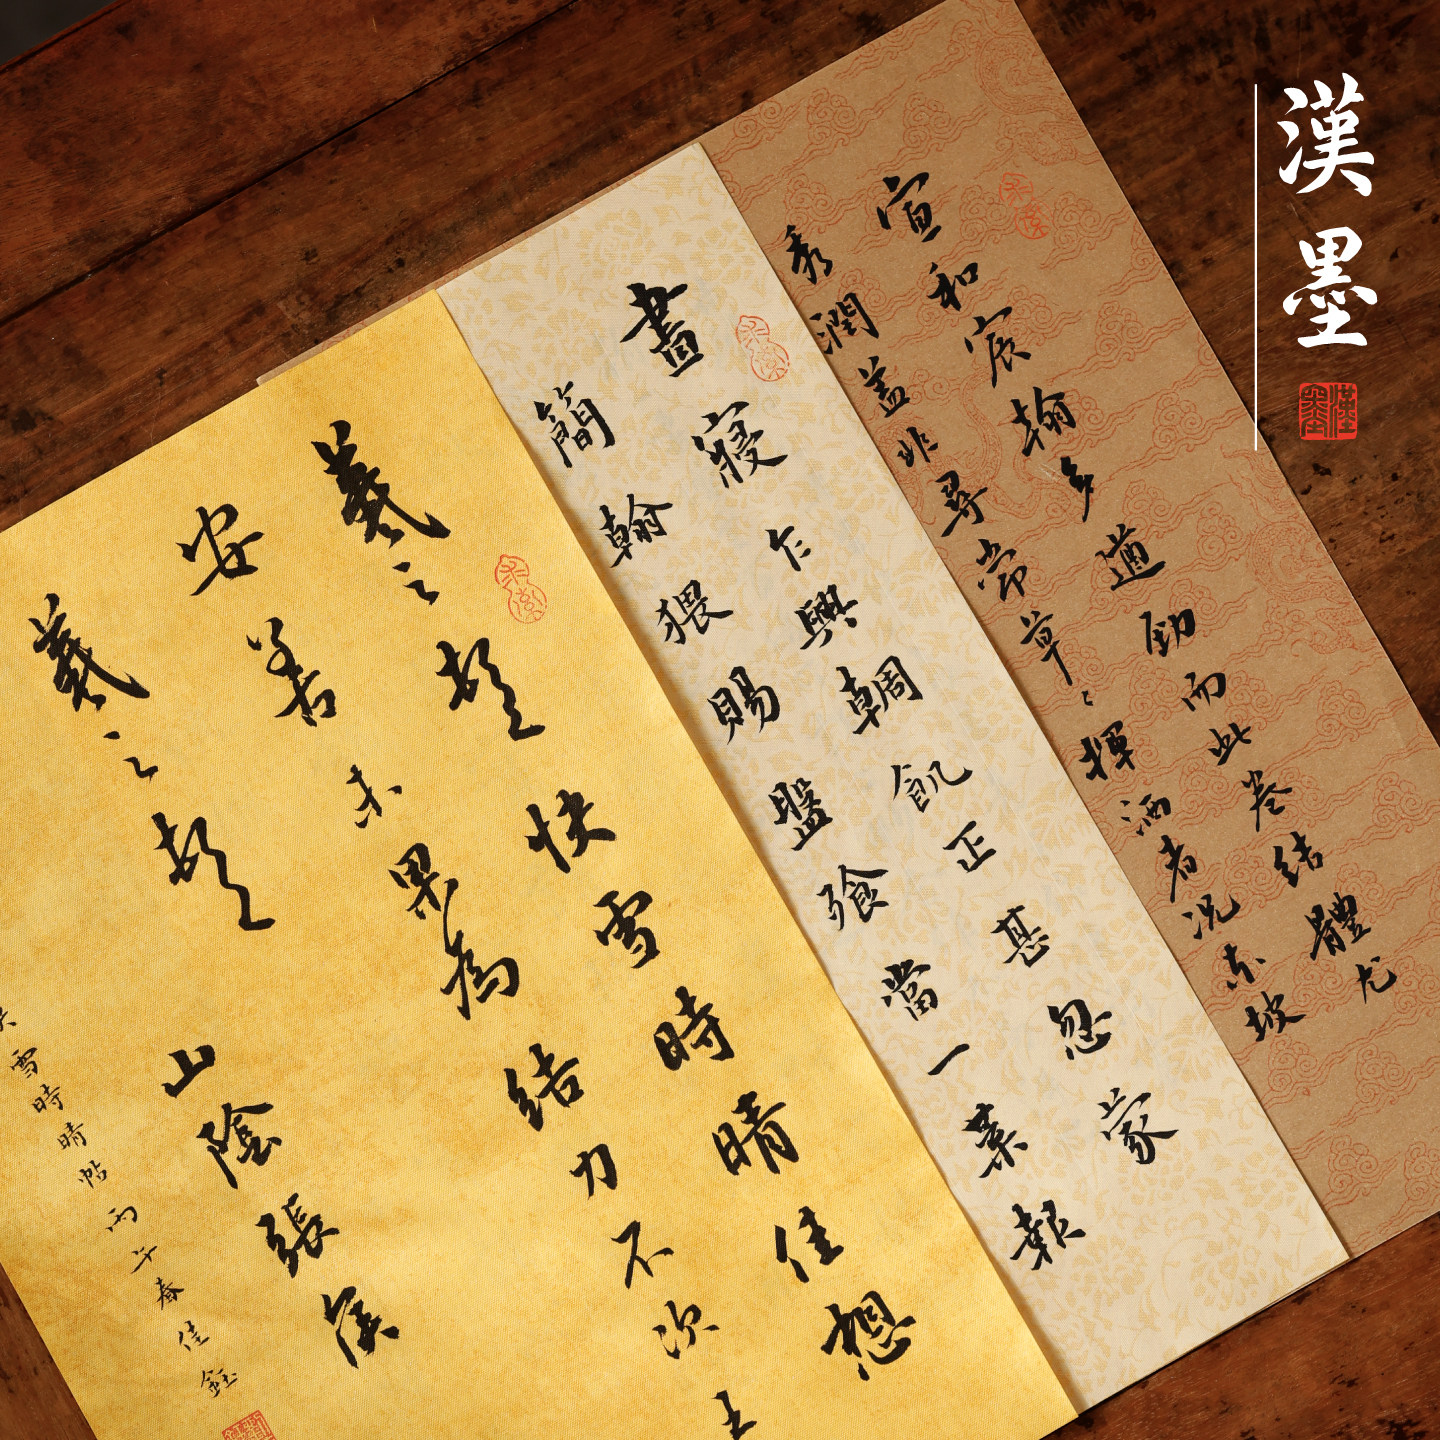 漢墨
漢墨
宣和宸翰多遒勁而此卷結體尤
秀潤蓋非尋常草〻揮洒者況東坡
晝寢乍興輖飢正甚忽蒙
簡翰猥賜盤飧當一葉報
羲之頓首快雪時晴佳想
安善未果為結力不次王
羲之頓首 山陰張侯
快雪時晴帖丙午春佳鈺